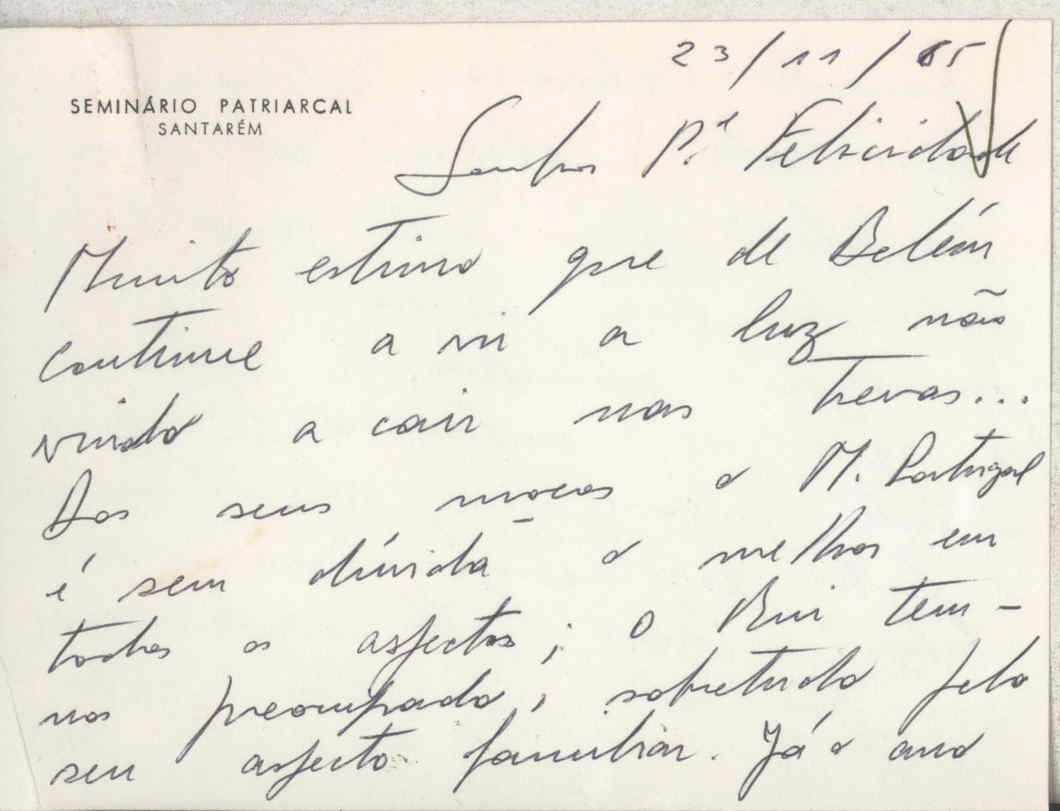 23/11/65
SEMINÁRIO PATRIARCAL
SANTARÉM
Senhor P.e Felicidade
Muito estimo que de Belém
continue a vir a luz não
vindo a cair nas trevas...
Dos seus moços o M. Portugal
é sem dúvida o melhor em
todos os aspectos; o Rui tem-
nos preocupado, sobretudo pelo
seu aspecto familiar. Já o ano